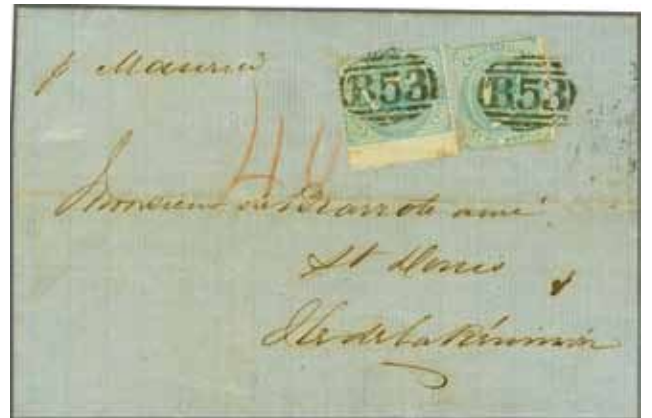 p Maurice
B53 B53
44
Monsieur aîné
St Denis
Ile de la Réunion